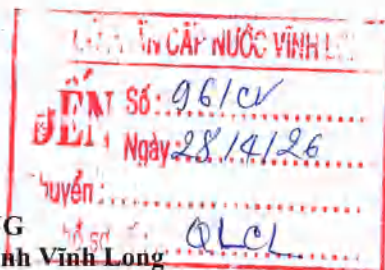 CẤP NƯỚC VĨNH L
ĐẾN Số: 96/CV
Ngày: 28/4/26
huyển:
QLCL
G
nh Vĩnh Long